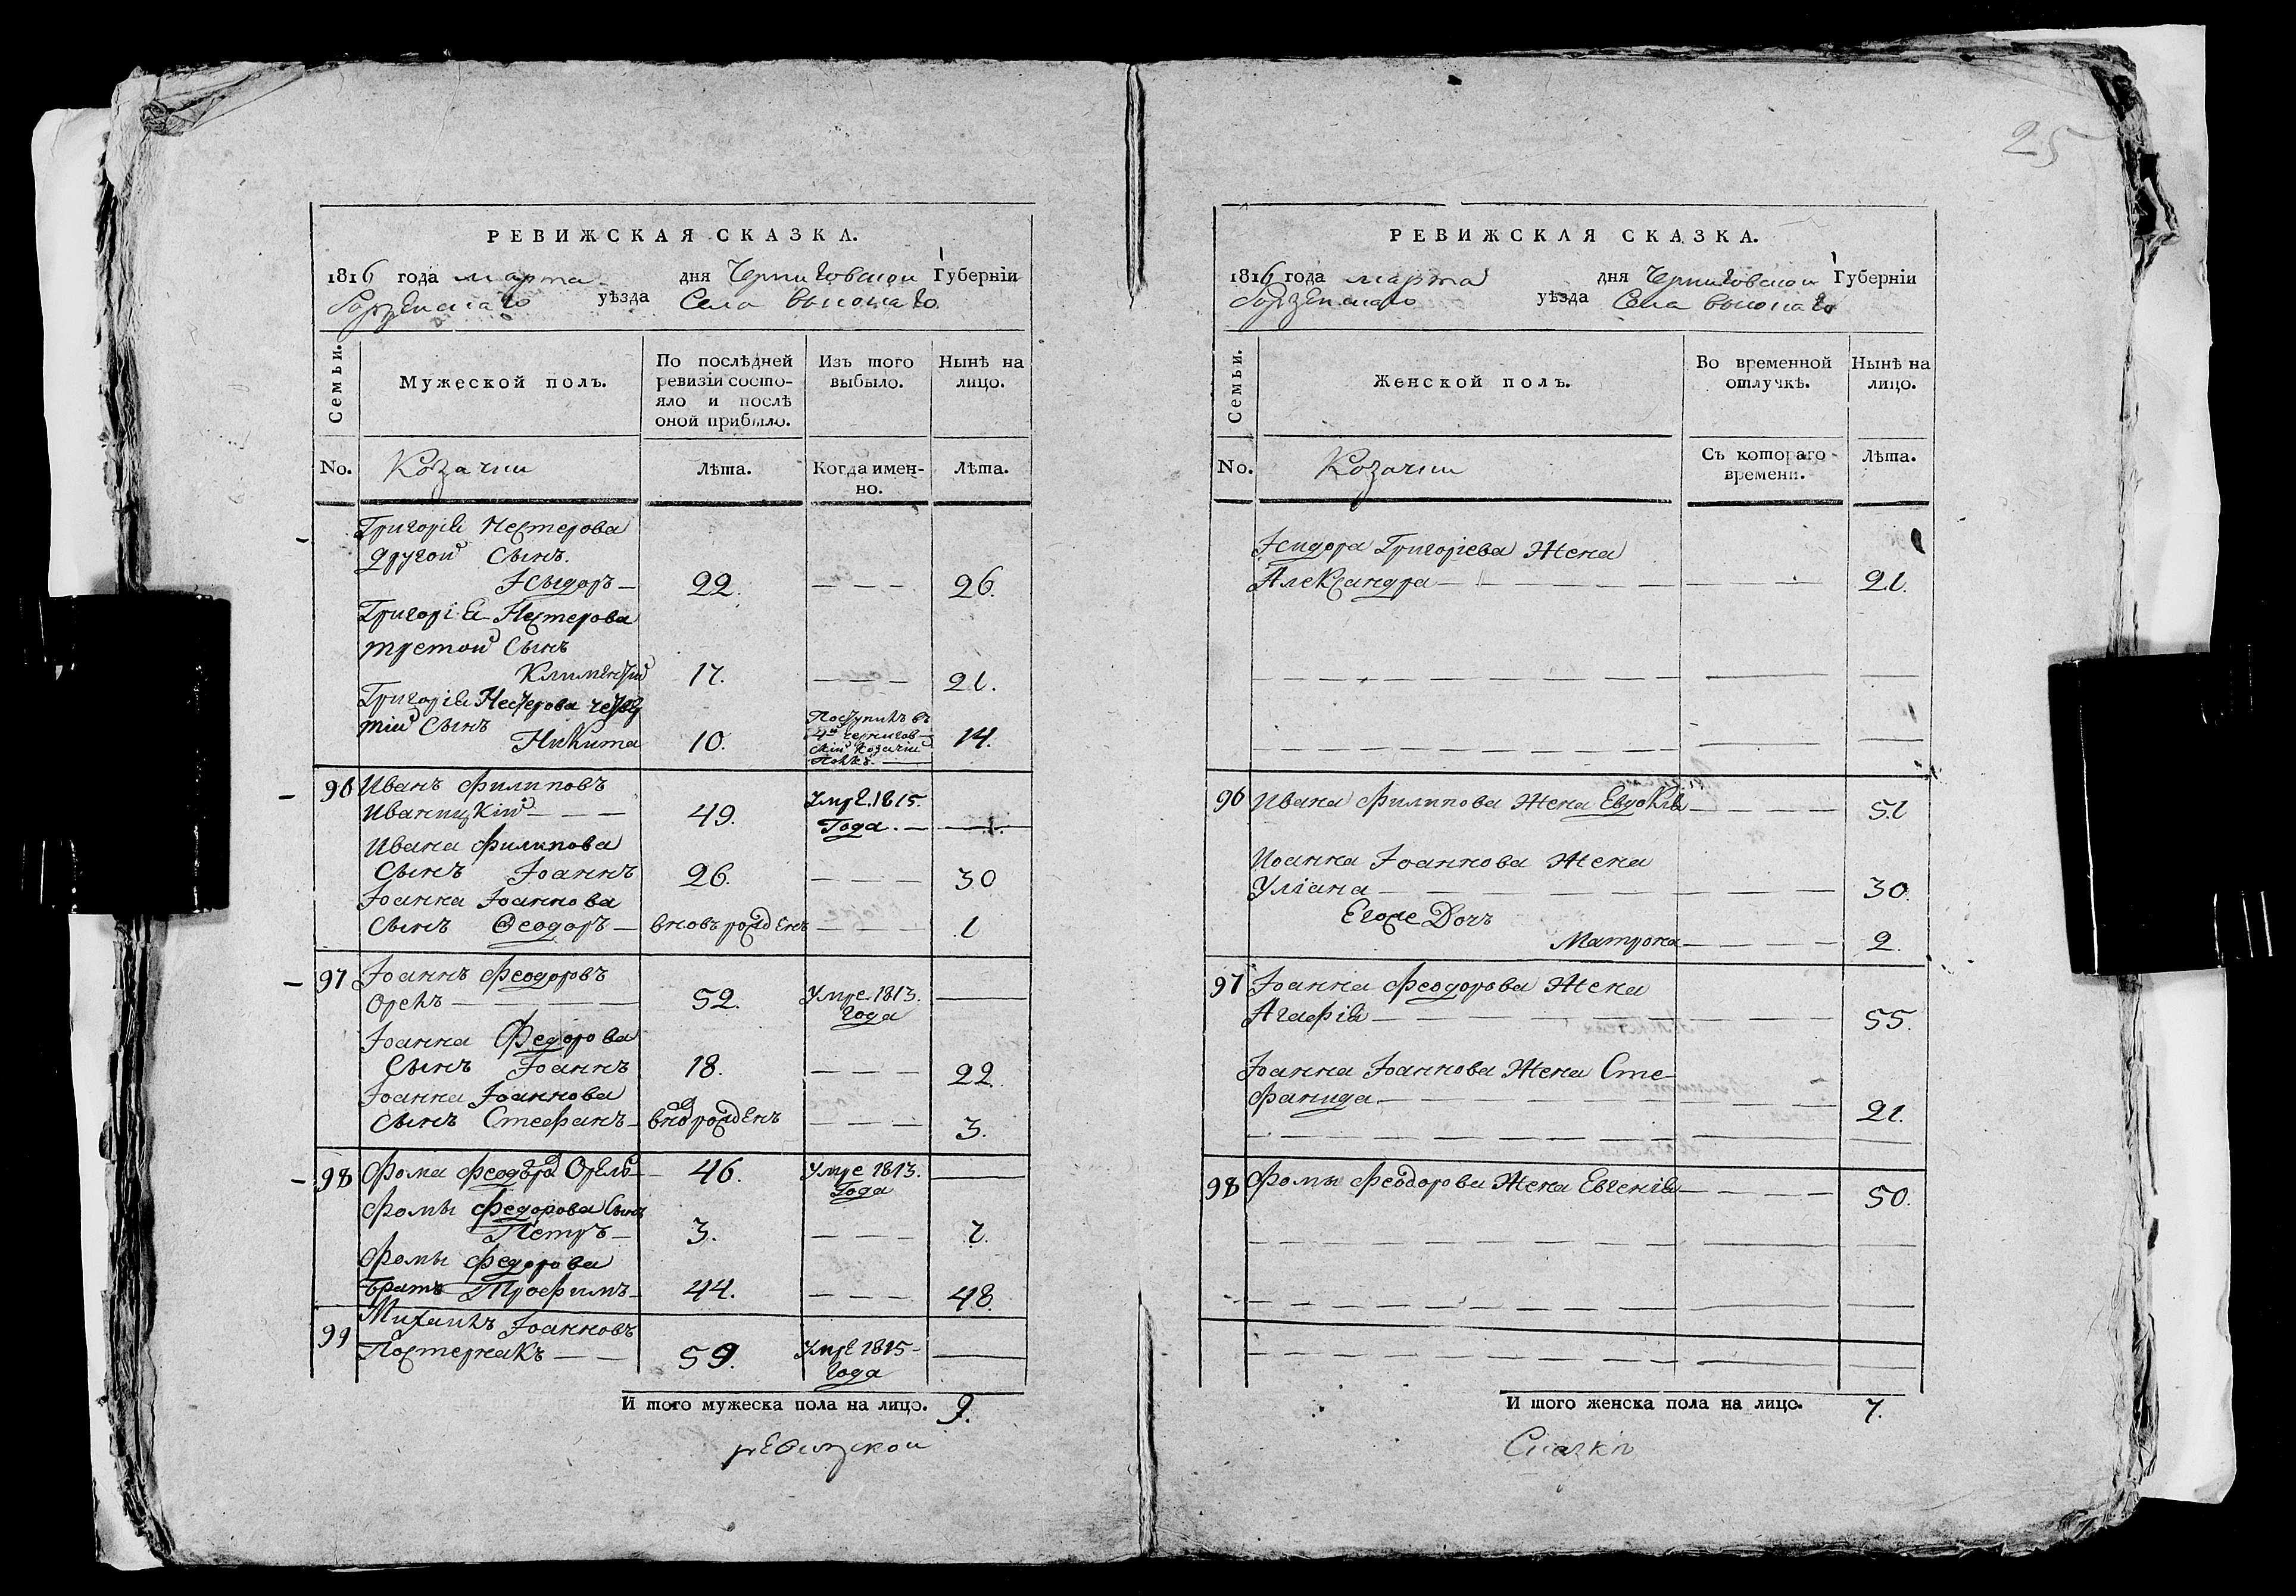 25
РЕВИЖСКАЯ СКАЗКА.
1816 года марта дня Черниговской Губерніи
уѣзда Села высокаго
Семьи.
Мужеской полъ.
По послѣдней
ревизіи состо-
яло и послѣ
оной прибыло.
Изъ того
выбыло.
Нынѣ на
лицо.
No.
Козачии
Лѣта.
Когда имен-
но.
Лѣта.
Григорія Нестерова
другой Сынъ.
Ісыдоръ — 22. — — — 26.
Григорія Нестерова
третой Сынъ
Климентій 17. — — — 21.
Григорія Нестерова четвер
тій Сынъ
Никита 10. 14.
Поступилъ въ
4й чернигов-
скій козачій
Полкъ. —
96 Иванъ Филиповъ
Иваницкій — — — 49. Умре. 1815.
Года. — —
Ивана Филипова
Сынъ Іоаннъ 26. — — — 30
Іоанна Іоаннова
Сынъ Ѳеодоръ — вновь рожденъ — — — 1
97 Іоаннъ Феодоровъ
Орелъ — — — 52. Умре. 1813. —
Года
Іоанна Федорова
Сынъ Іоаннъ 18. — — — 22
Іоанна Іоаннова
Сынъ Стефанъ — внов рожденъ — — — 3.
98 Фома Феодоров Орелъ — 46. Умре 1813. —
Года
Фомы Федорова Сынъ
Петръ — 3. — — — 7.
Фомы Федорова
братъ Трофимъ — 44. — — — 48.
99 Михаилъ Іоанновъ
Постернакъ — — 59. Умре 1815 — —
Года
И того мужеска пола на лицо. 9.
ревизской
РЕВИЖСКАЯ СКАЗКА.
1816 года марта дня Черниговской Губерніи
уѣзда Села высокаго
Семьи.
Женской полъ.
Во временной
отлучкѣ.
Нынѣ на
лицо.
No.
Козачии
Съ котораго
времени.
Лѣта.
Ісидора Григоріева Жена
Александра — — — — — — 21.
96 Ивана Филипова Жена Евдокія — — — — 51
Иоанна Іоаннова Жена
Уліана — — — — — — 30.
Егоже Дочь
Матрона — — — — 2.
97 Іоанна Феодорова Жена
Агафія — — — — — — 55.
Іоанна Іоаннова Жена Сте-
фанида — — — — — — 21.
98 Фомы Феодорова Жена Евгенія — — — — 50.
И того женска пола на лицо. 7.
Сказки